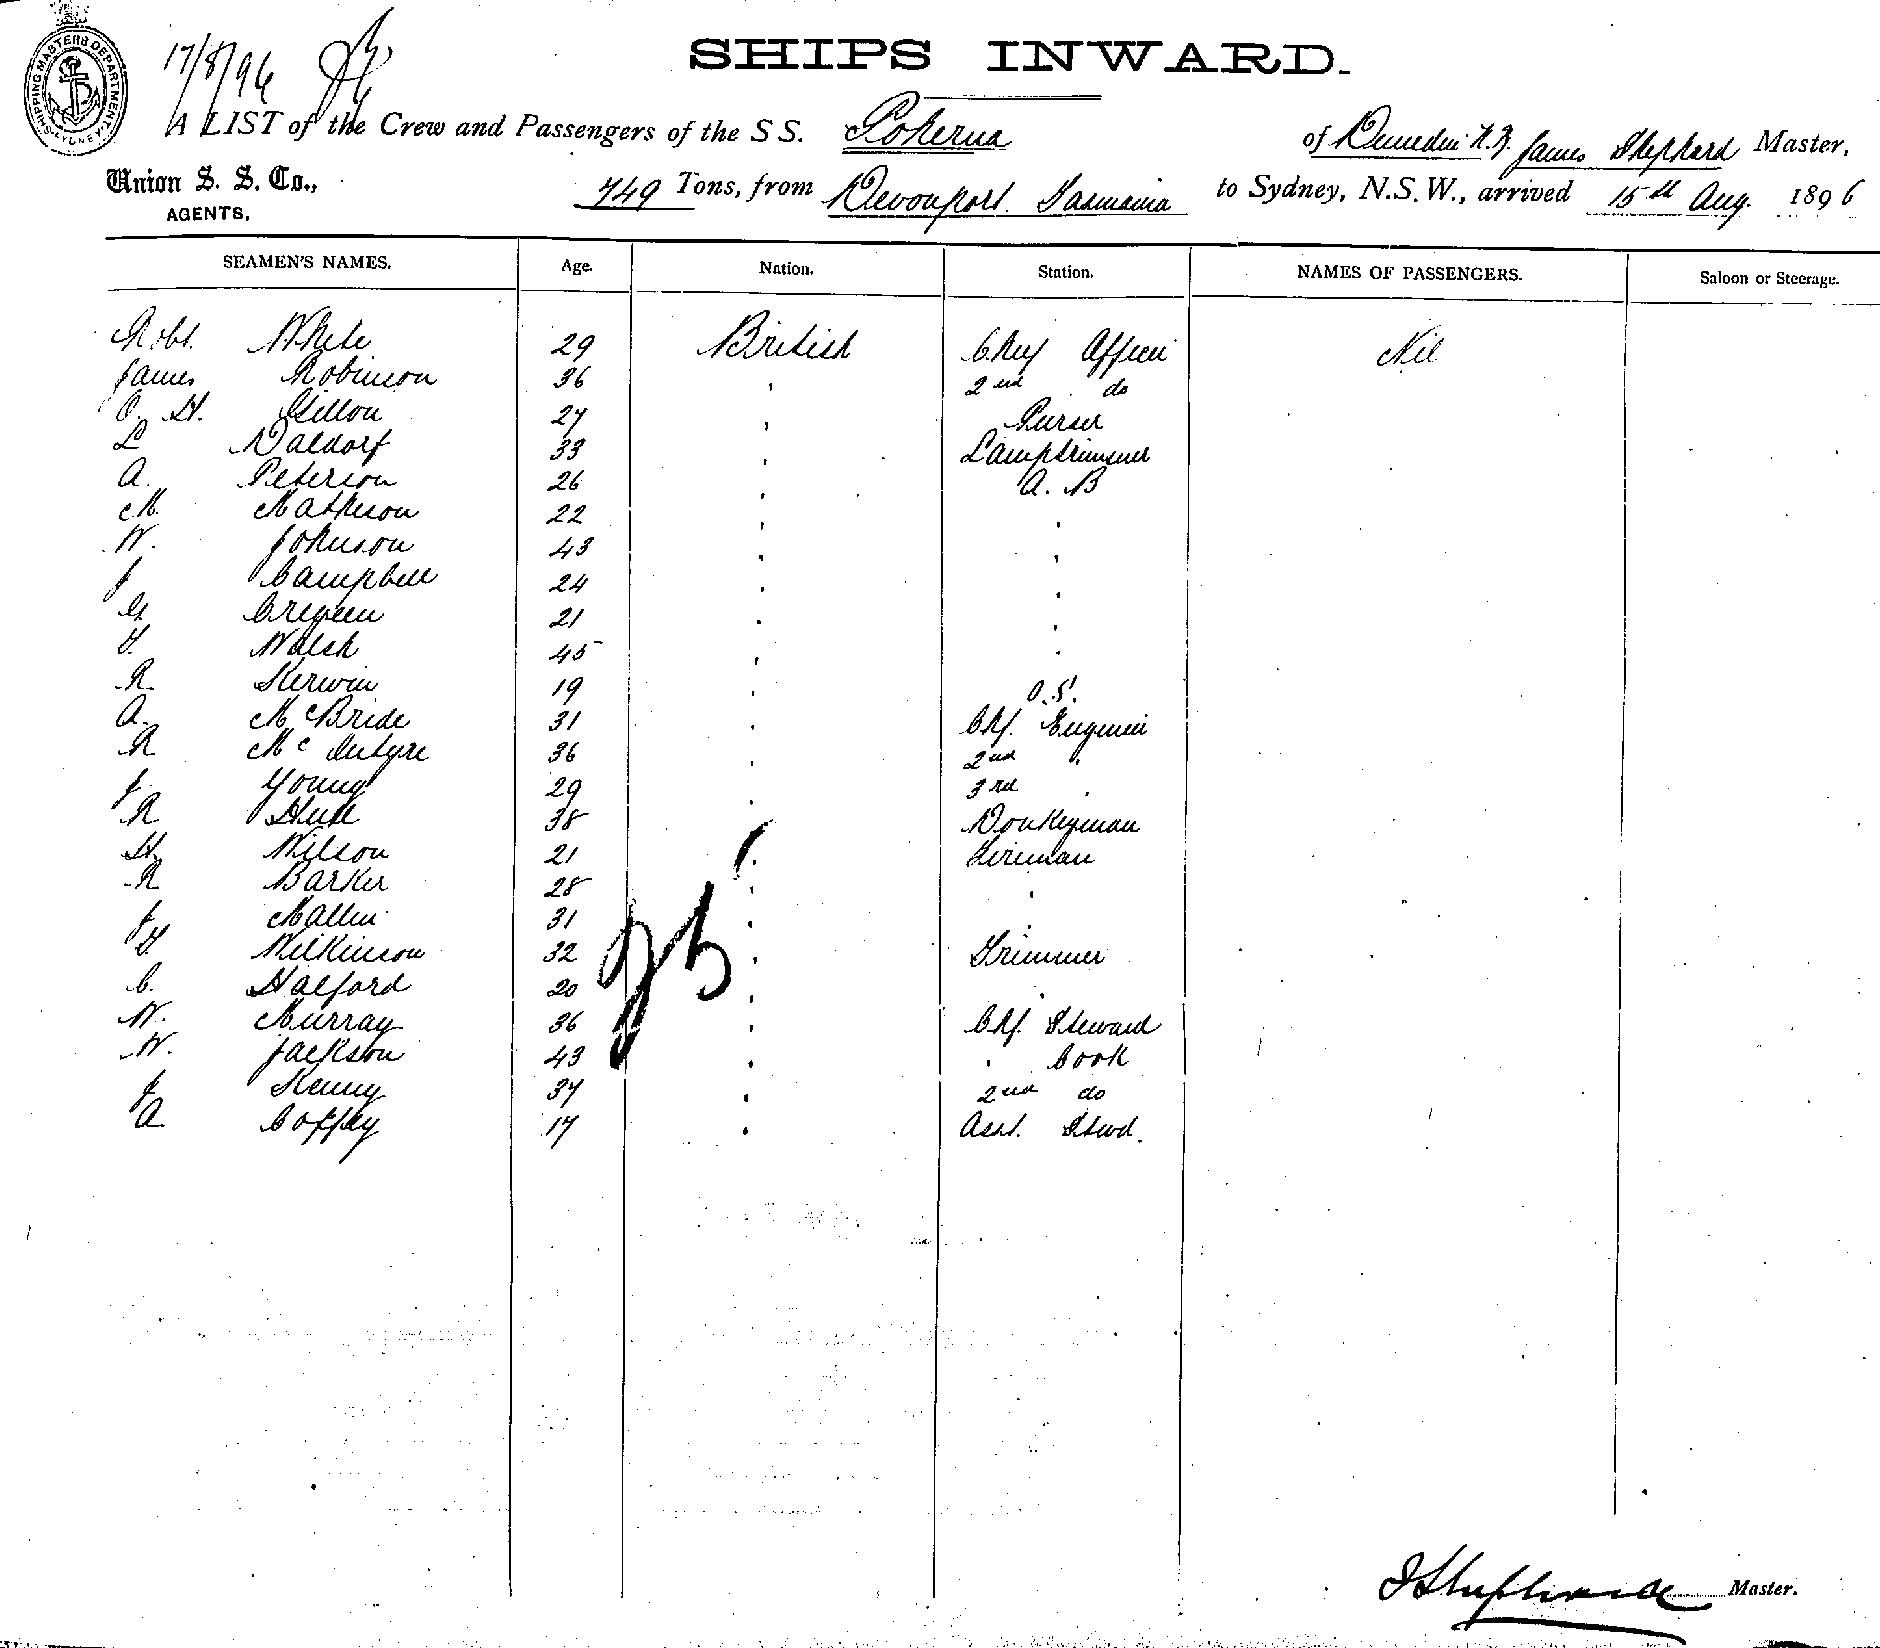 SHIPPING MASTERS DEPARTMENT SYDNEY
17/8/96
SHIPS INWARD.
A LIST of the Crew and Passengers of the S S. Pokerua of Dunedin N.Z. James Shephard Master,
Union S. S. Co.,
AGENTS,
749 Tons, from Devonport. Tasmania to Sydney, N.S.W., arrived 15th Aug. 1896
SEAMEN'S NAMES. Age. Nation. Station. NAMES OF PASSENGERS. Saloon or Steerage.
Robt. White 29 British Chief Officer Nil
James Robinson 36 " 2nd do
O. H. Gillon 27 " Purser
L Waldorf 33 " Lamptrimmer
A. Peterson 26 " A. B
M. Matheson 22 " "
W. Johnson 43 " "
J Campbell 24 " "
G. Cregeen 21 " "
T. Walsh 45 " "
R. Kerwin 19 " O.S.
A. McBride 31 " Chf. Engineer
R McIntyre 36 " 2nd "
J. Young 29 " 3rd "
R Hull 38 " Donkeyman
H. Wilson 21 " Fireman
R Barker 28 " "
J. Mallin 31 "
T. Wilkinson 32 " Trimmer
C. Halford 20 " "
W. Murray 36 " Chf. Steward
W. Jackson 43 " " Cook
J Kenny 37 " 2nd do
A Coffey 17 " Asst. Stwd.
J Shephard Master.